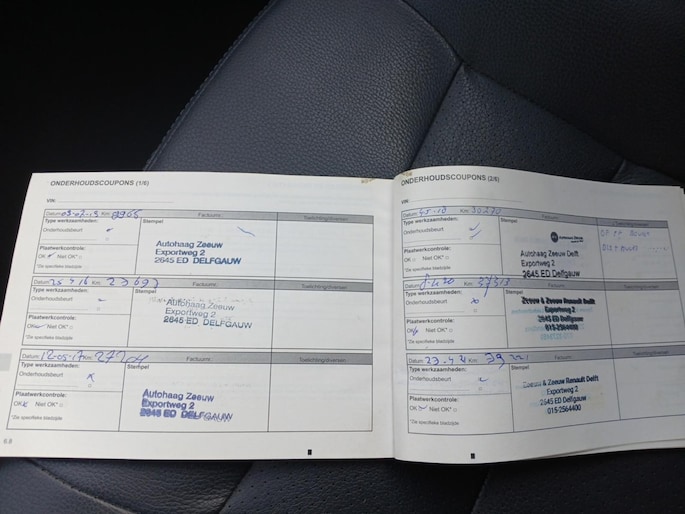 ONDERHOUDSCOUPONS (1/6)
VIN:
Datum: Km: 8965 Factuurnr.: Toelichting/diversen:
Type werkzaamheden: Stempel
Onderhoudsbeurt
Autohaag Zeeuw
Exportweg 2
2645 ED DELFGAUW
Plaatwerkcontrole:
OK Niet OK*
*Zie specifieke bladzijde
Datum: Km: Factuurnr.: Toelichting/diversen:
Type werkzaamheden: Stempel
Onderhoudsbeurt
Autohaag Zeeuw
Exportweg 2
2645 ED DELFGAUW
Plaatwerkcontrole:
OK Niet OK*
*Zie specifieke bladzijde
Datum: 12-05-17 Km: 27704 Factuurnr.: Toelichting/diversen:
Type werkzaamheden: Stempel
Onderhoudsbeurt
Autohaag Zeeuw
Exportweg 2
2645 ED DELFGAUW
Plaatwerkcontrole:
OK Niet OK*
*Zie specifieke bladzijde
6.8
ONDERHOUDSCOUPONS (2/6)
VIN:
Datum: Km: 30270 Factuurnr.: Toelichting/diversen:
Type werkzaamheden: Stempel
Onderhoudsbeurt
Autohaag Zeeuw Delft
Exportweg 2
2645 ED Delfgauw
Plaatwerkcontrole:
OK Niet OK*
*Zie specifieke bladzijde
Datum: Km: Factuurnr.: Toelichting/diversen:
Type werkzaamheden: Stempel
Onderhoudsbeurt
Zeeuw & Zeeuw Renault Delft
Exportweg 2
2645 ED Delfgauw
015-2564400
Plaatwerkcontrole:
OK Niet OK*
*Zie specifieke bladzijde
Datum: 23.4.21 Km: Factuurnr.: Toelichting/diversen:
Type werkzaamheden: Stempel
Onderhoudsbeurt
Zeeuw & Zeeuw Renault Delft
Exportweg 2
2645 ED Delfgauw
015-2564400
Plaatwerkcontrole:
OK Niet OK*
*Zie specifieke bladzijde